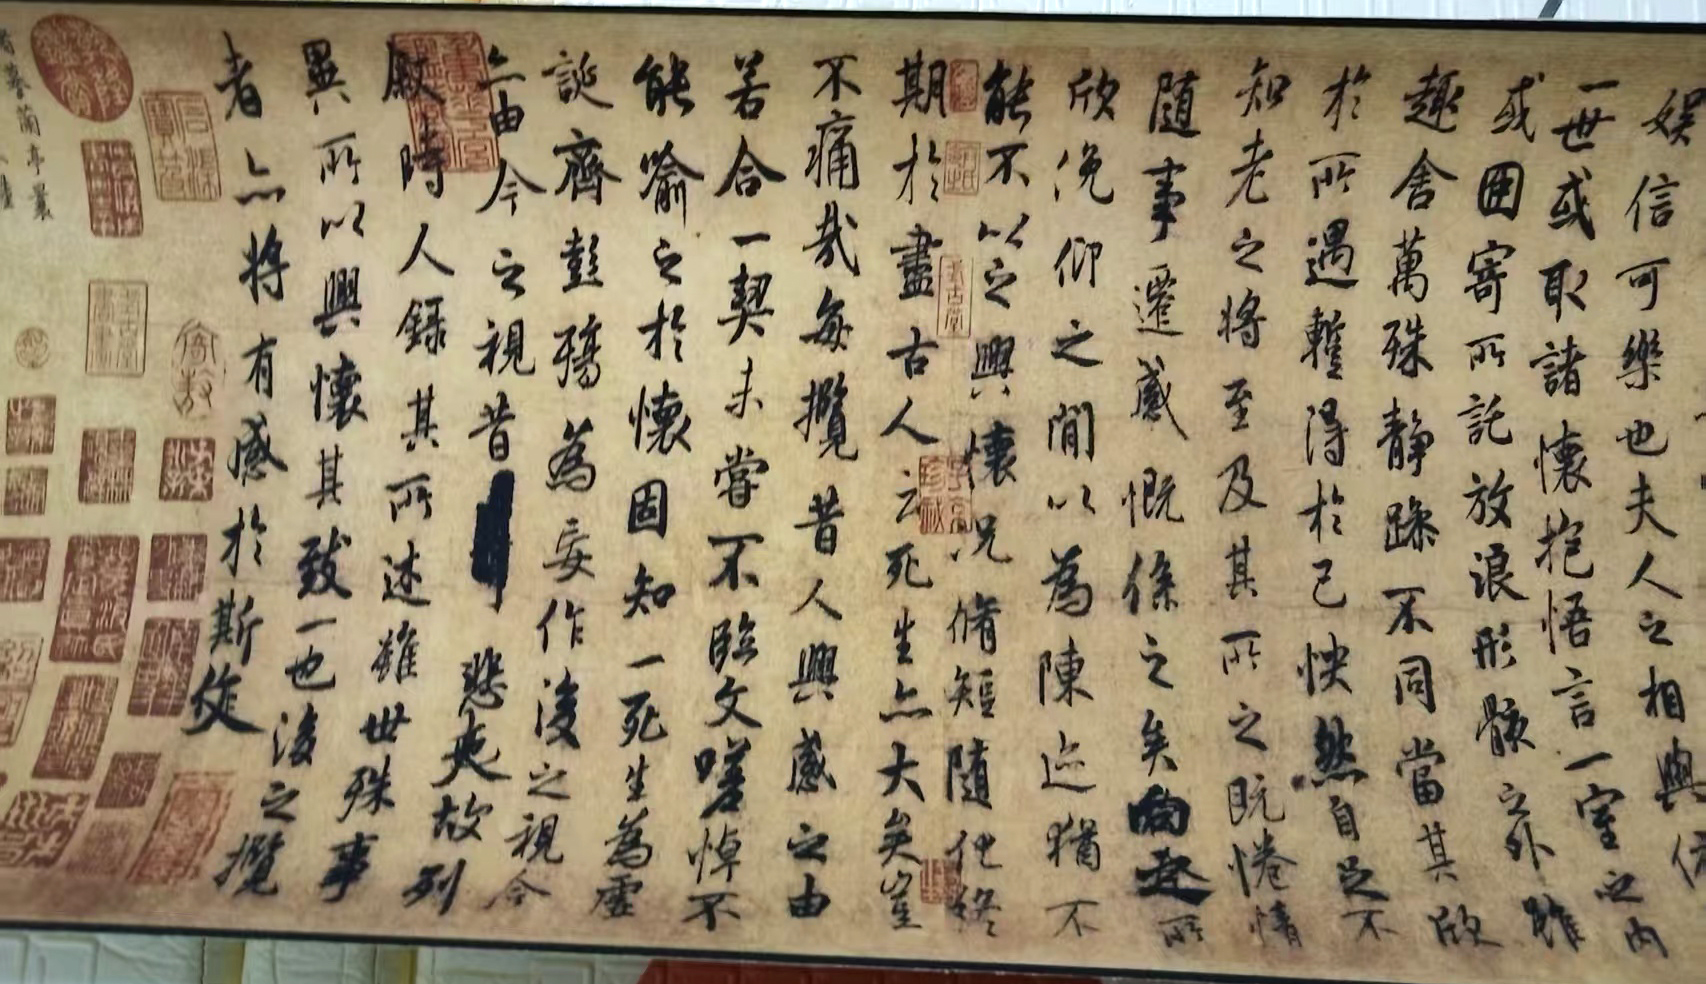 娱信可樂也夫人之相與俯
一世或取諸懷抱悟言一室之内
或因寄所託放浪形骸之外雖
趣舍萬殊静躁不同當其欣
於所遇蹔得於己怏然自足不
知老之將至及其所之既惓情
隨事遷感慨係之矣向之所
欣俛仰之閒以為陳迹猶不
能不以之興懷況脩短隨化終
期於盡古人云死生亦大矣豈
不痛哉每攬昔人興感之由
若合一契未嘗不臨文嗟悼不
能喻之於懷固知一死生為虚
誕齊彭殤為妄作後之視今
亦由今之視昔悲夫故列
叙時人録其所述雖世殊事
異所以興懷其致一也後之攬
者亦將有感於斯文
摹蘭亭